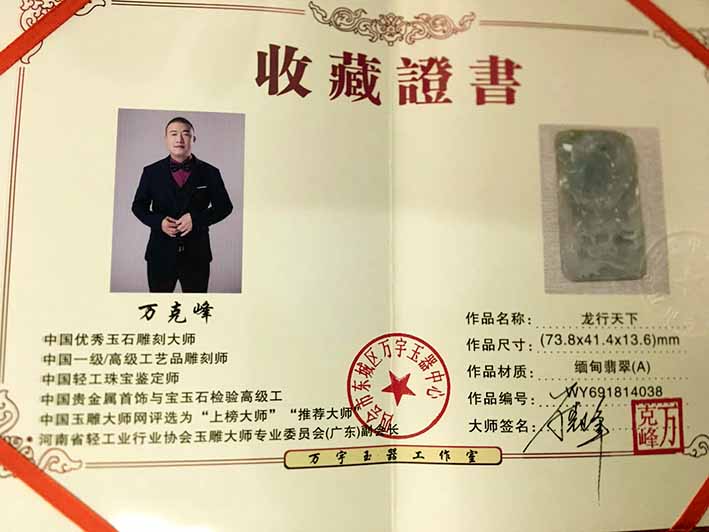 收藏證書
万克峰
中国优秀玉石雕刻大师
中国一级/高级工艺品雕刻师
中国轻工珠宝鉴定师
中国贵金属首饰与宝玉石检验高级工
中国玉雕大师网评选为“上榜大师”“推荐大师”
河南省轻工业行业协会玉雕大师专业委员会(广东)副会长
四会市东城区万宇玉器中心
作品名称: 龙行天下
作品尺寸: (73.8x41.4x13.6)mm
作品材质: 缅甸翡翠(A)
作品编号: WY691814038
大师签名: 万克峰
万克峰
万宇玉器工作室